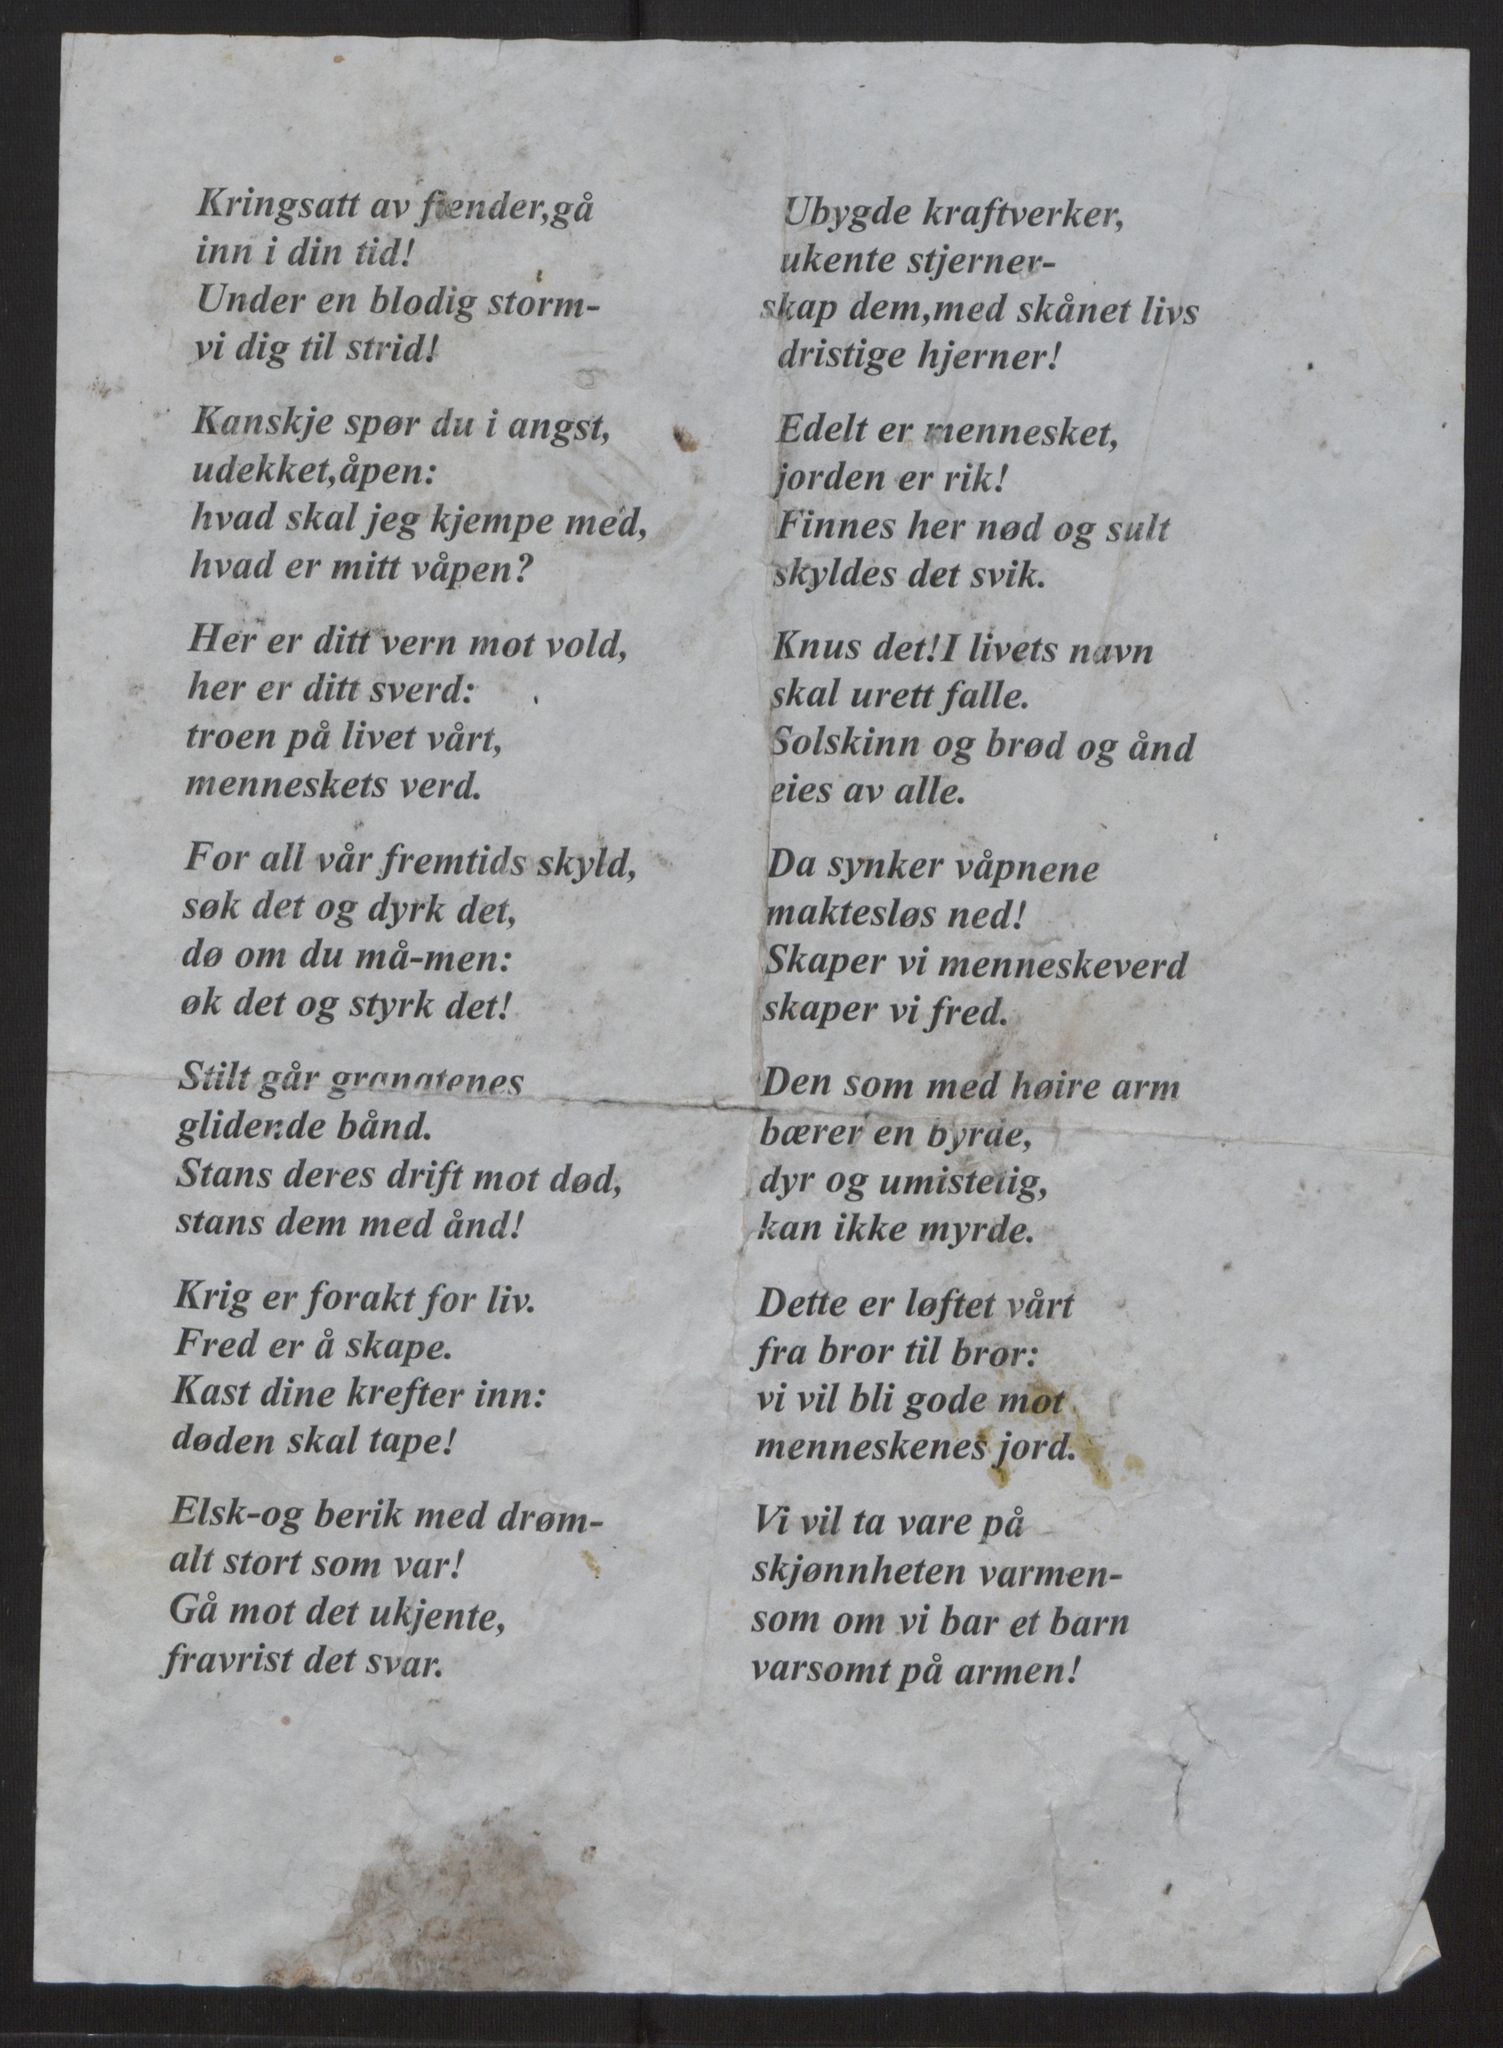 Kringsatt av fiender,gå
inn i din tid!
Under en blodig storm-
vi dig til strid!

Kanskje spør du i angst,
udekket,åpen:
hvad skal jeg kjempe med,
hvad er mitt våpen?

Her er ditt vern mot vold,
her er ditt sverd:
troen på livet vårt,
menneskets verd.

For all vår fremtids skyld,
søk det og dyrk det,
dø om du må-men:
øk det og styrk det!

Stilt går granatenes
glidende bånd.
Stans deres drift mot død,
stans dem med ånd!

Krig er forakt for liv.
Fred er å skape.
Kast dine krefter inn:
døden skal tape!

Elsk-og berik med drøm-
alt stort som var!
Gå mot det ukjente,
fravrist det svar.

Ubygde kraftverker,
ukente stjerner-
skap dem,med skånet livs
dristige hjerner!

Edelt er mennesket,
jorden er rik!
Finnes her nød og sult
skyldes det svik.

Knus det!I livets navn
skal urett falle.
Solskinn og brød og ånd
eies av alle.

Da synker våpnene
maktesløs ned!
Skaper vi menneskeverd
skaper vi fred.

Den som med høire arm
bærer en byrde,
dyr og umistelig,
kan ikke myrde.

Dette er løftet vårt
fra bror til bror:
vi vil bli gode mot
menneskenes jord.

Vi vil ta vare på
skjønnheten varmen-
som om vi bar et barn
varsomt på armen!